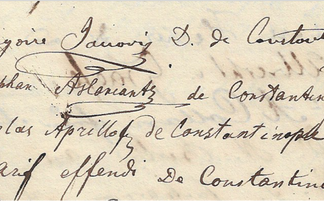 goire Janovis D. de Constant
phan Aslaniantz de Constantin
olas Aprilloz de Constantinople
arif effendi De Constantino